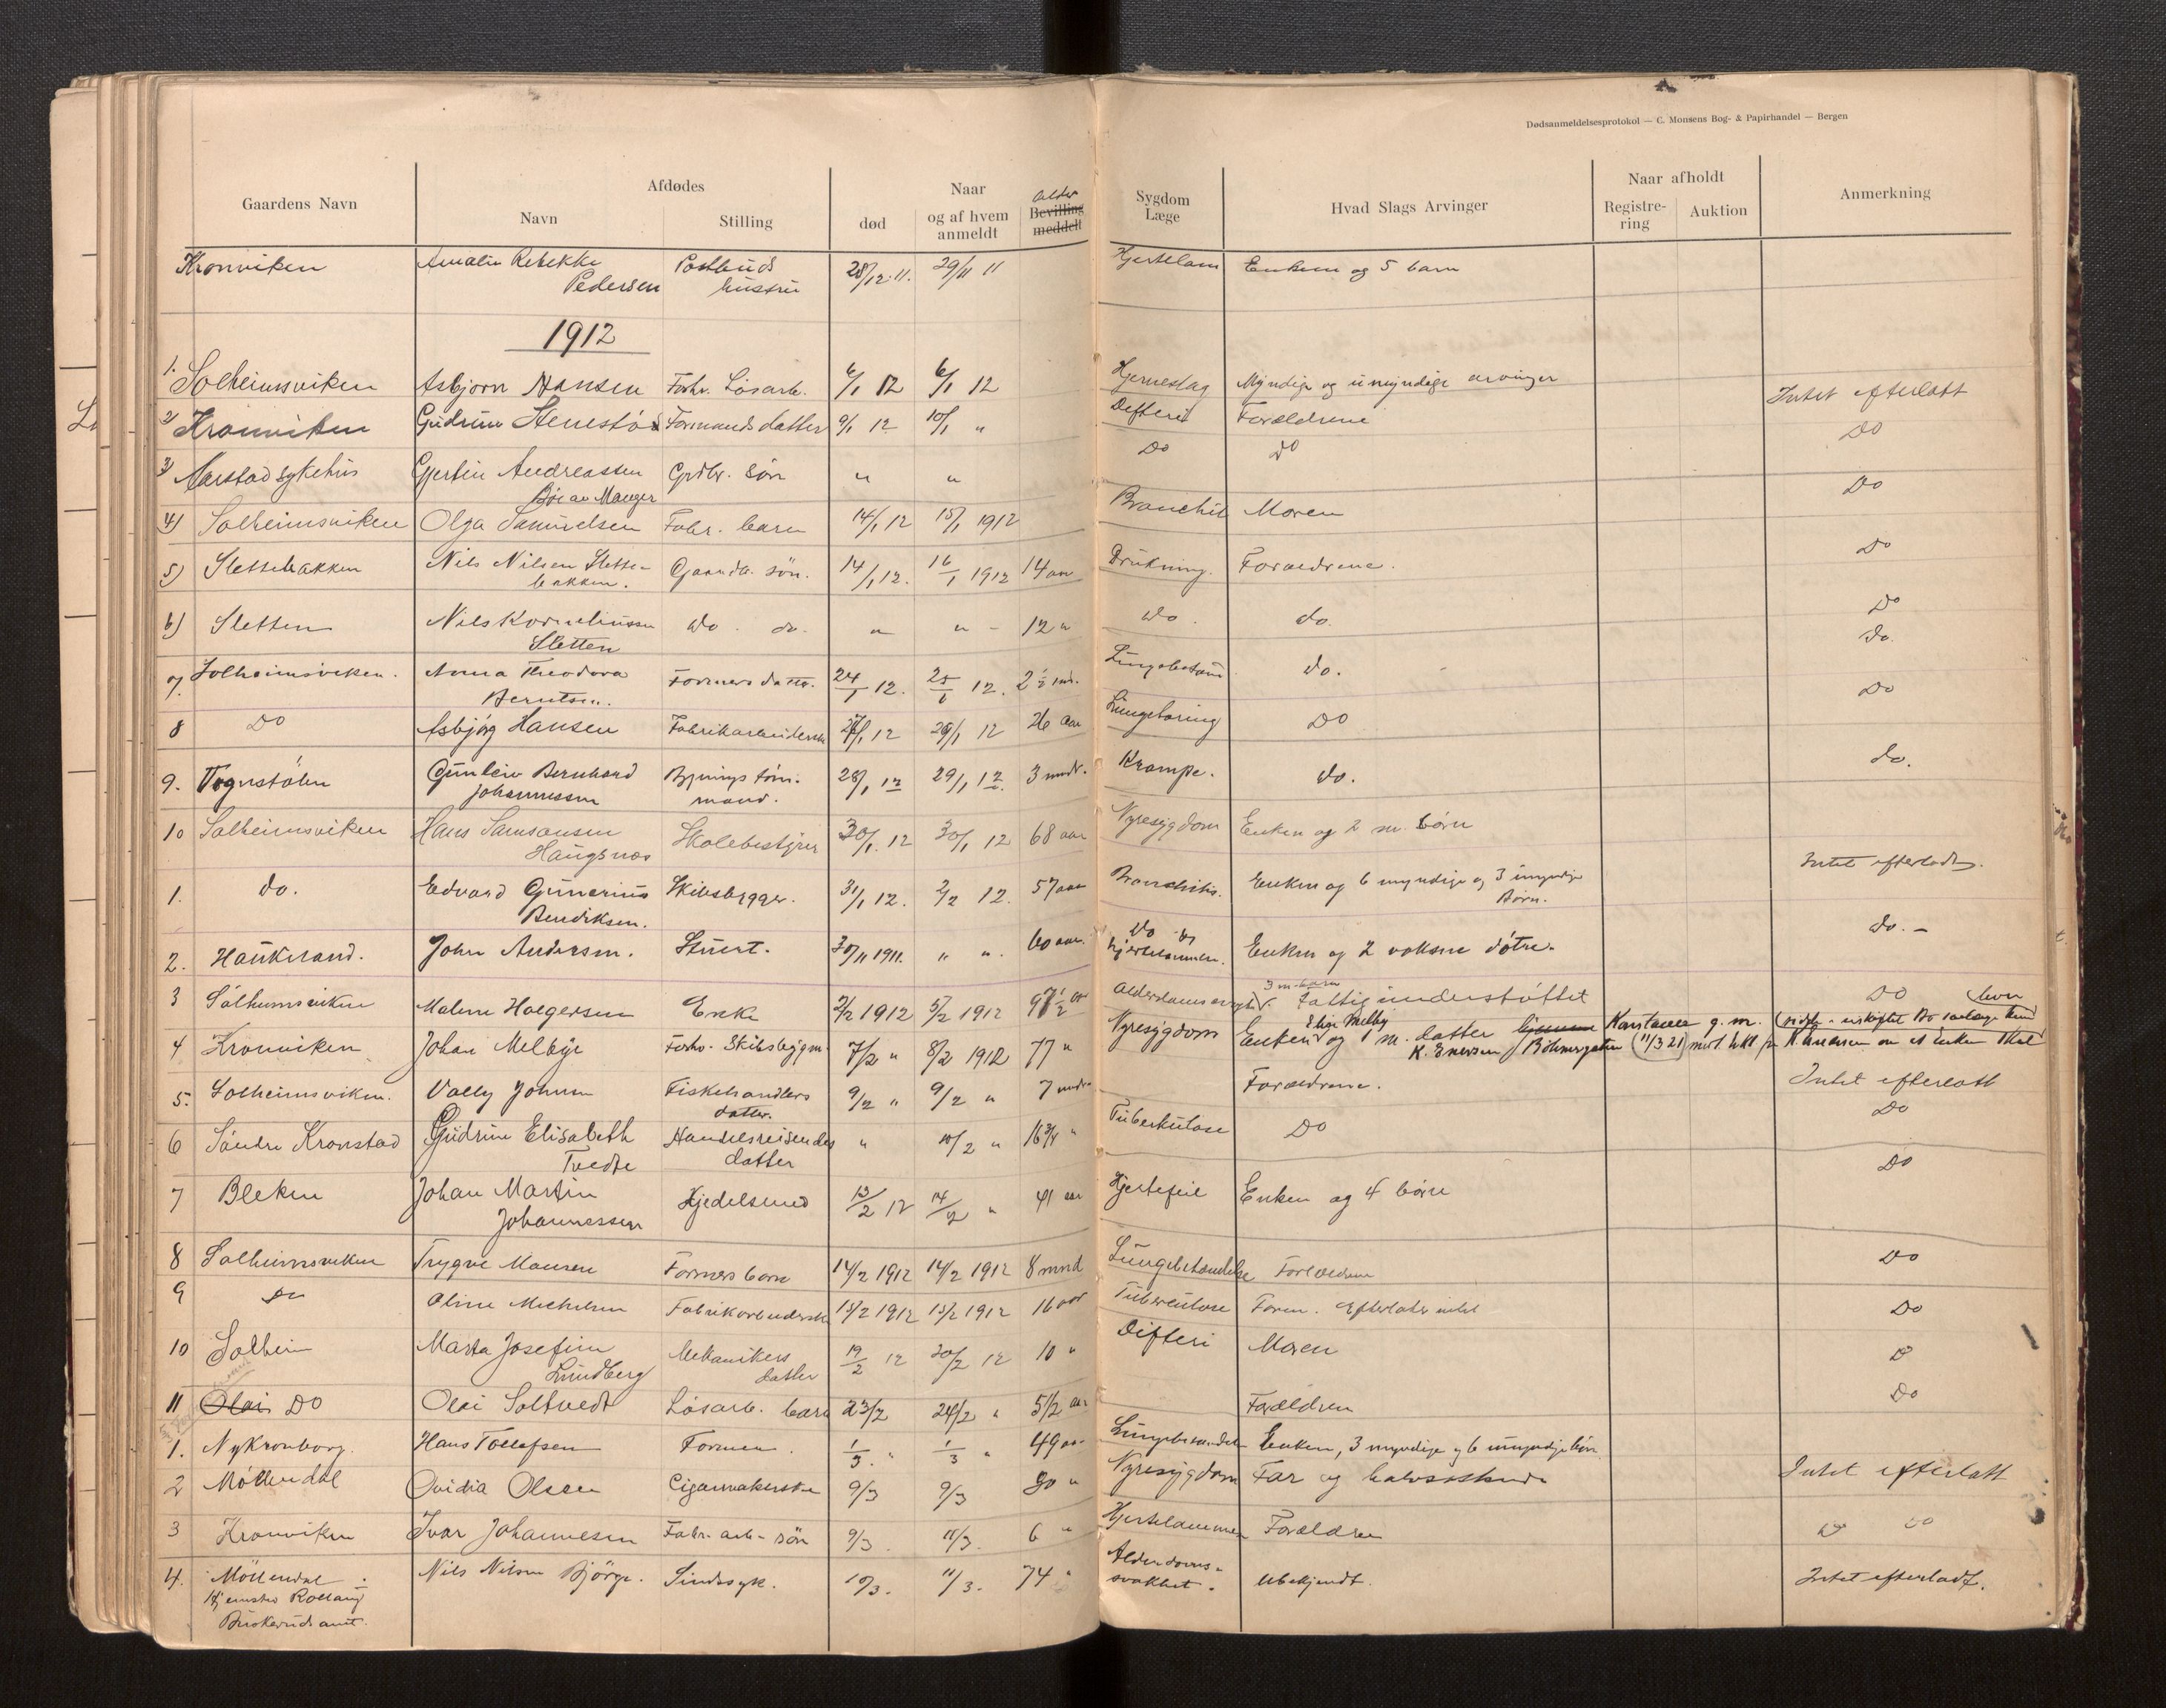 Dødsanmeldelsesprotokol — C. Monsens Bog- & Papirhandel — Bergen
Gaardens Navn
Afdødes
Navn
Stilling
død
Naar
og af hvem
anmeldt
Alder
Bevilling
meddelt
Sygdom
Læge
Hvad Slags Arvinger
Naar afholdt
Registre-
ring
Auktion
Anmerkning
Kronviken Amalie Rebekka Postbuds 28/12.11. 29/11 11 Hjertelam Enkem og 5 barn
Pedersen hustru
1912
1. Solheimsviken Asbjørn Hansen Forhv. Løsarb. 6/1 12 6/1 12 Hjerneslag Myndige og umyndige arvinger Intet efterlatt
2) Kronviken Gudrun Stenestø Formands datter 9/1 12 10/1 " Defteri Forældrene Do
3) Aarstad sykehus Gjertin Andreassen Grdbr. søn " " Do Do Do
Bøe av Manger
4) Solheimsviken Olga Samuelsen Fabr. barn 14/1 12 15/1 1912 Bronchit Moren
5) Slettebakken Nils Nilsen Slette- Gaardb. søn. 14/1 12. 16/1 1912 14 aar Drukning. Foraldrene. Do
bakken.
6) Sletten Nils Korneliussen do. do. " " - 12 " do. do. Do
Sletten
7. Solheimsviken. Anna Theodora Formers datter. 24/1 12. 25/1 12. 2 1/2 md. do. do.
Berntsen.
8 Do Asbjørg Hansen Fabrikarbeiderske 27/1 12 29/1 12 26 aar Do Do
9. Vognstølen Gunleiv Bernhard 28/1 12 29/1 12. 3 mndr. Krampe. do. do.
Johannessen mand.
10 Solheimsviken Hans Samsonsen Skolebestyrer 30/1. 12 30/1 12 68 aar Nyresygdom Enken og 2 m. børn
Haugsnæs
1. do. Edvard Gunerius Skibsbygger. 31/1 12. 2/2 12. 57 aar Bronchitis. Enken og 6 myndige og 3 umyndige Intet efterladt.
Bendiksen. Børn.
2. Haukeland. John Andersen. Stuert. 30/11 1911. " ". 60 aar. do og Enken og 2 voksne døtre. do. -
hjertelammelse.
3 Solheimsviken Malene Holgersen Enke 2/2 1912 5/2 1912 97 1/2 aar Alderdomssvaghed. 3 m. barn fattigunderstøttet Do
4 Kronviken Johan Melbye Forhv. Skibsbygm. 7/2 " 8/2 1912 77 " Nyresygdom Enken Elise Melby og m. datter Konstance g. m.
K. Enersen (11/3 21)
5. Solheimsviken. Vally Johnsen Fiskehandlers 9/2 " 9/2 " 7 mndr. Forældrene. Intet efterlatt
datter.
6 Søndre Kronstad Gudrun Elisabeth Handelsreisendes " 10/2 " 16 3/4 " Tuberkulose Do Do
Tvedte datter
7 Bleken Johan Martin Kjedelsmed 13/2 12 14/2 " 41 aar Hjertefeil Enken og 4 børn Do
Johannessen
8 Solheimsviken Trygve Monsen Formers barn 14/2 1912 14/2 1912 8 mnd Lungebetændelse Forældrene Do
9 Do Oline Michelsen Fabrikarbeiderske 15/2 1912 15/2 1912 16 aar Tuberculose Faren. Efterlater intet Do
10 Solheim Marta Josefine Mekanikers 19/2 12 20/2 12 10 " Difteri Moren D
Lundberg datter
11 Olai Do Olai Soltvedt Løsarb. barn 23/2 24/2 " 5 1/2 aar Forældrene Do
1. Ny Kronborg. Hans Tollefsen Former. 1/3. " 1/3 " 49 aar Lungebetændelse Enken, 3 myndige og 6 umyndige børn
2 Møllendal Ovidia Olsen Cigarmakerske 9/3 9/3 30 " Nyresygdom Far og halvsøskende Intet efterlatt
3 Kronviken Ivar Johannesen Fabr. arb. søn 9/3. 11/3. 6 " Hjertelammelse Forældrene Do
4. Møllendal. Nils Nilsen Bjørge. Sindssyk. 10/3. 11/3. 74 " Alderdoms- Ubekjendt. Intet efterladt.
Hjemstavn Rollaug svakhet.
Buskeruds amt.